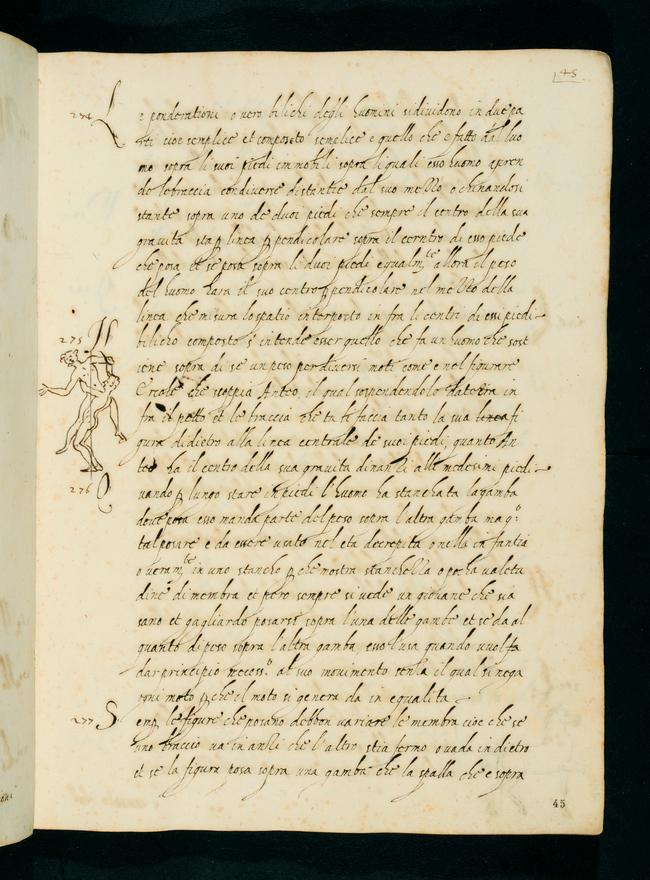 45
274 Le ponderationi overo bilichi degli huomini si dividono in due pa
rti cioe semplice et composto semplice e quello che e fatto dal huo
mo sopra li suoi piedi immobili sopra li quali esso huomo apren
do le braccia con diverse distantie dal suo mezzo o chinandosi
stante sopra uno de duoi piedi che sempre il centro della sua
gravita sta p linea ppendicolare sopra il cerntro di esso piede
che posa et se posa sopra li duoi piedi equalm.te allora il peso
del huomo hara il suo centro ppendicolare nel mezzo della
linea che misura lo spatio interposto in fra li centri di essi piedi
275 Il bilicho composto s'intende esser quello che fa un huomo che sost
iene sopra di se un peso per diversi moti come e nel figurare
Ercole che scoppia Anteo il qual sospendendolo da terra in
fra il petto et le braccia che tu li faccia tanto la sua linea fi
gura di dietro alla linea centrale de suoi piedi quanto An
teo ha il centro della sua gravita dinanzi alli medesimi piedi
276 Quando p lungo stare in piedi l'huomo ha stanchata la gamba
dove posa esso manda parte del peso sopra l'altra gamba ma q.o
tal posare e da essere usato nel eta decrepita o nella infantia
o veram.te in uno stancho p che mostra stanchezza o pocha valetu
dine di membra et pero sempre si vede un giovane che sia
sano et gagliardo posarsi sopra l'una delle gambe et se da al
quanto di peso sopra l'altra gamba esso l'usa quando vuol
dar principio necess.o al suo movimento senza il qual si nega
ogni moto p che il moto si genera da inequalita
277 Semp le figure che posano debbon variare le membra cioe che se
uno braccio va inanzi che l'altro stia fermo o vada indietro
et se la figura posa sopra una gamba che la spalla che e sopra
45